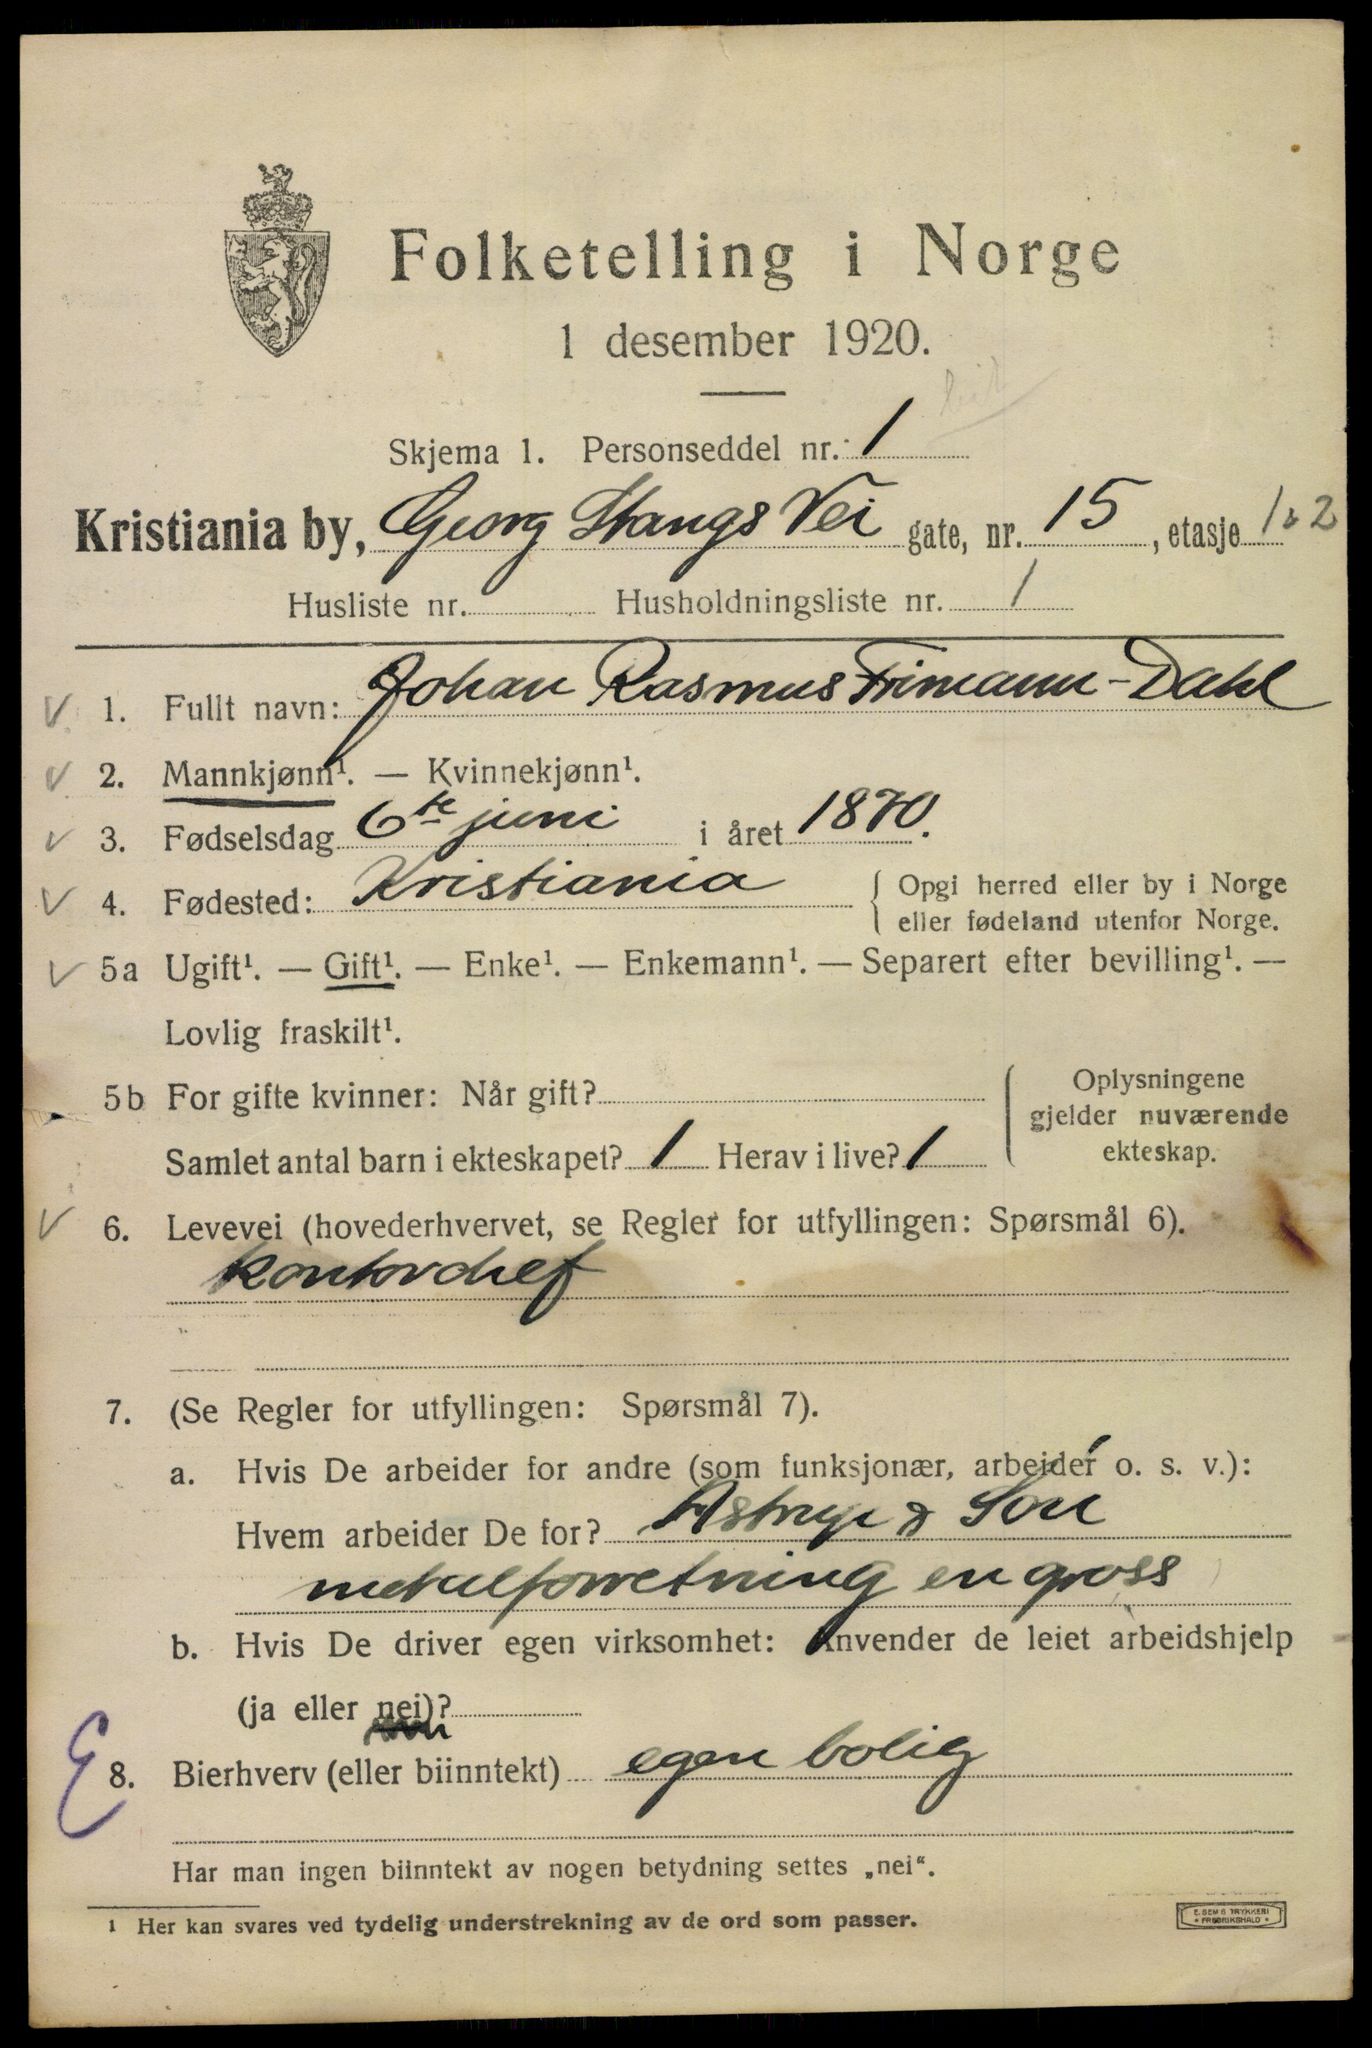 Folketelling i Norge
1 desember 1920.
Skjema 1. Personseddel nr. 1
Kristiania by, Georg Stangs Vei gate, nr. 15, etasje 1 & 2
Husliste nr. Husholdningsliste nr. 1
1. Fullt navn: Johan Rasmus Frimann-Dahl
2. Mannkjønn¹. — Kvinnekjønn¹.
3. Fødselsdag 6te juni i året 1870.
4. Fødested: Kristiania { Opgi herred eller by i Norge
eller fødeland utenfor Norge.
5a Ugift¹. — Gift¹. — Enke¹. — Enkemann¹. — Separert efter bevilling¹. —
Lovlig fraskilt¹.
5b For gifte kvinner: Når gift?
Samlet antal barn i ekteskapet? 1 Herav i live? 1
Oplysningene
gjelder nuværende
ekteskap.
6. Levevei (hovederhvervet, se Regler for utfyllingen: Spørsmål 6).
kontorchef
7. (Se Regler for utfyllingen: Spørsmål 7).
a. Hvis De arbeider for andre (som funksjonær, arbeider o. s. v.):
Hvem arbeider De for? Astrup & Søn
metalforretning en gross
b. Hvis De driver egen virksomhet: Anvender de leiet arbeidshjelp
(ja eller nei)?
E 8. Bierhverv (eller biinntekt) egen bolig
Har man ingen biinntekt av nogen betydning settes „nei“.
1 Her kan svares ved tydelig understrekning av de ord som passer.
E. SEM'S TRYKKERI
* FREDRIKSHALD *